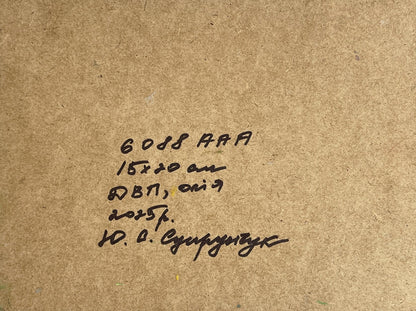 6088 ААА
15x20 см
ДВП, олія
2025р.
Ю. С. Супрунчук